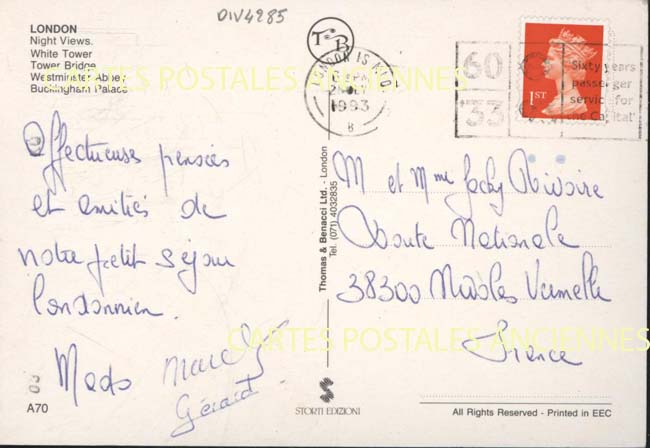 DIV4285
LONDON
Night Views.
White Tower
Tower Bridge
Westminster Abbey
Buckingham Palace
CARTES POSTALES ANCIENNES
TB
1993
B
60
'33
Sixty years
passenger
service for
the Capital'
1ST
Affectueuses pensées
et amitiés de
notre petit séjour
londonnien.
Mado Marcel
Gérard
03
A70
Thomas & Benacci Ltd. - London
Tel. (071) 4032835
M et Mme Jacky
Route Nationale
38300
France
CARTES POSTALES ANCIENNES
STORTI EDIZIONI
All Rights Reserved - Printed in EEC